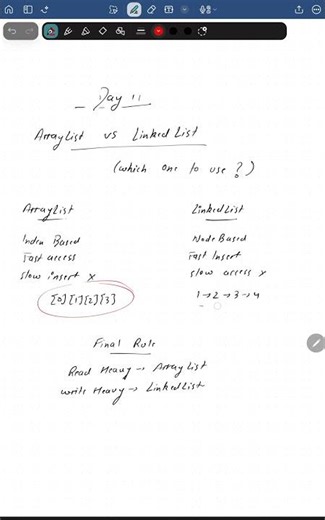 Day 11
ArrayList vs LinkedList
(which one to use ?)
ArrayList
Index Based
Fast access
slow insert x
[0][1][2][3]
LinkedList
Node Based
Fast Insert
slow access x
1→2→3→4
Final Rule
Read Heavy → ArrayList
write Heavy → LinkedList